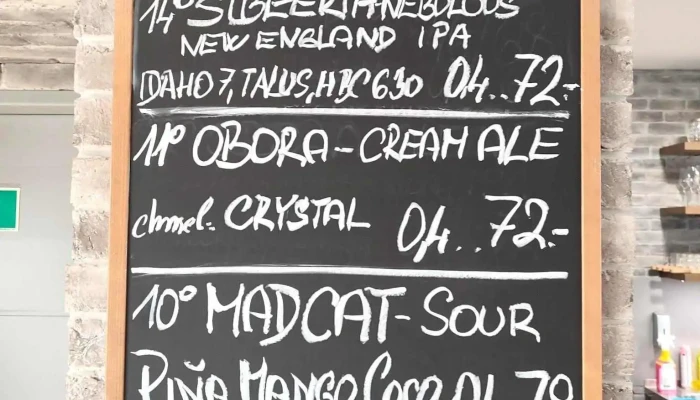 14° SIBEERIA-NEBULOUS
NEW ENGLAND IPA
IDAHO 7, TALUS, HBC 630 04.. 72.-
11° OBORA - CREAM ALE
chmel: CRYSTAL 04.. 72.-
10° MADCAT - SOUR
PIÑA MANGO COCO 04 79